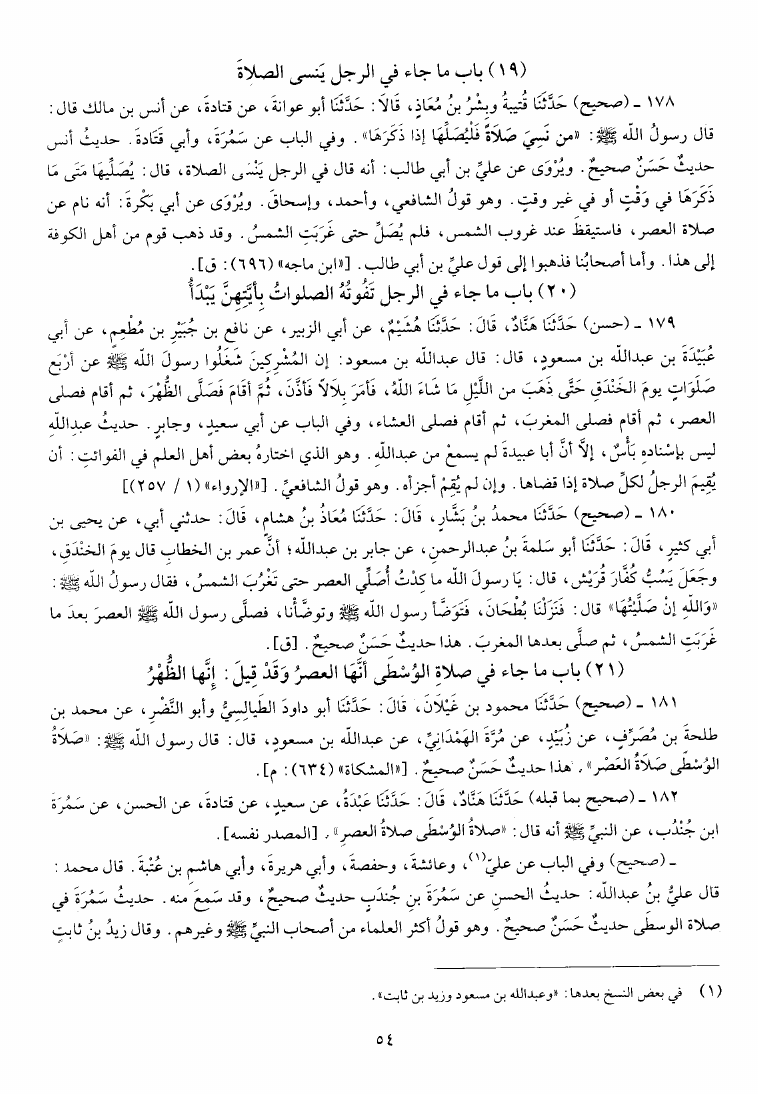 (١٩) باب ما جاء في الرجل يَنسى الصلاةَ
١٧٨ ـ (صحيح) حَدَّثَنَا قُتيبةُ وبِشْرُ بنُ مُعَاذٍ، قَالَا: حَدَّثَنَا أبو عوانةَ، عن قتادةَ، عن أنس بن مالك قال:
قال رسولُ الله ﷺ: «من نَسِيَ صَلَاةً فَلْيُصَلِّهَا إذا ذَكَرَهَا». وفي الباب عن سَمُرَةَ، وأبي قَتَادَةَ. حديثُ أنس
حديثٌ حَسَنٌ صحيحٌ. ويُرْوَى عن عليِّ بن أبي طالب: أنه قال في الرجل يَنْسَى الصلاة، قال: يُصَلِّيهَا مَتَى مَا
ذَكَرَهَا في وَقْتٍ أو في غير وقتٍ. وهو قولُ الشافعي، وأحمد، وإسحاقَ. ويُرْوَى عن أبي بَكْرةَ: أنه نام عن
صلاة العصر، فاستيقظَ عند غروب الشمس، فلم يُصَلِّ حتى غَرَبَتِ الشمسُ. وقد ذهب قوم من أهل الكوفة
إلى هذا. وأما أصحابُنا فذهبوا إلى قول عليِّ بن أبي طالب. [«ابن ماجه» (٦٩٦): ق].
(٢٠) باب ما جاء في الرجل تَفُوتُهُ الصلواتُ بِأَيَّتِهِنَّ يَبْدَأُ
١٧٩ ـ (حسن) حَدَّثَنَا هَنَّادٌ، قَالَ: حَدَّثَنَا هُشَيْمٌ، عن أبي الزبير، عن نافع بن جُبَيْرِ بن مُطْعِمٍ، عن أبي
عُبَيْدَةَ بن عبدالله بن مسعودٍ، قال: قال عبدالله بن مسعود: إن المُشْرِكِينَ شَغَلُوا رسولَ الله ﷺ عن أَرْبَعِ
صَلَوَاتٍ يومَ الخَنْدَقِ حَتَّى ذَهَبَ من اللَّيْلِ مَا شَاءَ اللهُ، فَأَمَرَ بِلَالاً فَأَذَّنَ، ثُمَّ أَقَامَ فَصَلَّى الظُّهْرَ، ثم أقام فصلى
العصر، ثم أقام فصلى المغربَ، ثم أقام فصلى العشاء، وفي الباب عن أبي سعيدٍ، وجابرٍ. حديثُ عبداللهِ
ليس بإسْناده بَأْسٌ، إلاَّ أنَّ أبا عبيدةَ لم يسمعْ من عبداللهِ. وهو الذي اختارهُ بعض أهل العلم في الفوائتِ: أن
يُقِيمَ الرجلُ لكلِّ صلاة إذا قضاها. وإن لم يُقِمْ أجزأه. وهو قولُ الشافعيِّ. [«الإرواء» (١ / ٢٥٧)]
١٨٠ ـ (صحيح) حَدَّثَنَا محمدُ بنُ بَشَّارٍ، قَالَ: حَدَّثَنَا مُعَاذُ بنُ هشامٍ، قَالَ: حدثني أبي، عن يحيى بن
أبي كثيرٍ، قَالَ: حَدَّثَنَا أبو سَلَمةَ بنُ عبدالرحمنِ، عن جابر بن عبدالله؛ أنَّ عمر بن الخطابِ قال يومَ الخَنْدَقِ،
وجَعَلَ يَسُبُّ كُفَّارَ قُرَيْشٍ، قال: يَا رسولَ الله ما كِدْتُ أُصَلِّي العصر حتى تَغْرُبَ الشمسُ، فقال رسولُ الله ﷺ:
«وَاللهِ إِنْ صَلَّيْتُهَا» قال: فَنَزَلْنَا بُطْحَانَ، فَتَوَضَّأَ رسول الله ﷺ وتوضَّأْنا، فصلَّى رسول الله ﷺ العصرَ بعدَ ما
غَرَبَتِ الشمسُ، ثم صلَّى بعدها المغربَ. هذا حديثٌ حَسَنٌ صحيحٌ. [ق].
(٢١) باب ما جاء في صلاةِ الوُسْطَى أنَّهَا العصرُ وَقَدْ قِيلَ: إنَّها الظُّهْرُ
١٨١ ـ (صحيح) حَدَّثَنَا محمود بن غَيْلَانَ، قَالَ: حَدَّثَنَا أبو داودَ الطَيالِسيُّ وأبو النَّضْرِ، عن محمد بن
طلحةَ بن مُصَرِّفٍ، عن زُبَيْدٍ، عن مُرَّةَ الهَمْدَانيِّ، عن عبدالله بن مسعودٍ، قال: قال رسول الله ﷺ: «صَلَاةُ
الوُسْطَى صَلَاةُ العَصْرِ». هذا حديثٌ حَسَنٌ صحيحٌ. [«المشكاة» (٦٣٤): م].
١٨٢ ـ (صحيح بما قبله) حَدَّثَنَا هَنَّادٌ، قَالَ: حَدَّثَنَا عَبْدَةُ، عن سعيدٍ، عن قتادةَ، عن الحسن، عن سَمُرَةَ
ابن جُنْدُب، عن النبيِّ ﷺ أنه قال: «صلاةُ الوُسْطَى صلاةُ العصرِ». [المصدر نفسه].
ـ (صحيح) وفي الباب عن عليّ(١)، وعائشةَ، وحفصةَ، وأبي هريرةَ، وأبي هاشمِ بن عُتْبَةَ. قال محمد:
قال عليُّ بنُ عبدالله: حديثُ الحسنِ عن سَمُرَةَ بنِ جُندَبٍ حديثٌ صحيحٌ، وقد سَمِعَ منه. حديثُ سَمُرَةَ في
صلاة الوسطَى حديثٌ حَسَنٌ صحيحٌ. وهو قولُ أكثر العلماء من أصحاب النبيِّ ﷺ وغيرهم. وقال زيدُ بنُ ثابتٍ
(١) في بعض النسخ بعدها: «وعبدالله بن مسعود وزيد بن ثابت».
٥٤